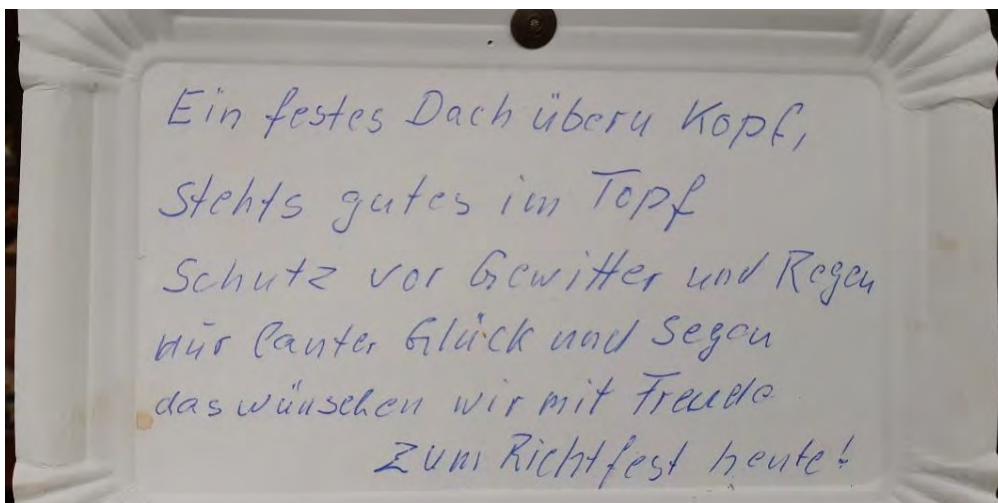 Ein festes Dach übern Kopf,
stehts gutes im Topf
Schutz vor Gewitter und Regen
nur lauter Glück und Segen
das wünschen wir mit Freude
zum Richtfest heute!